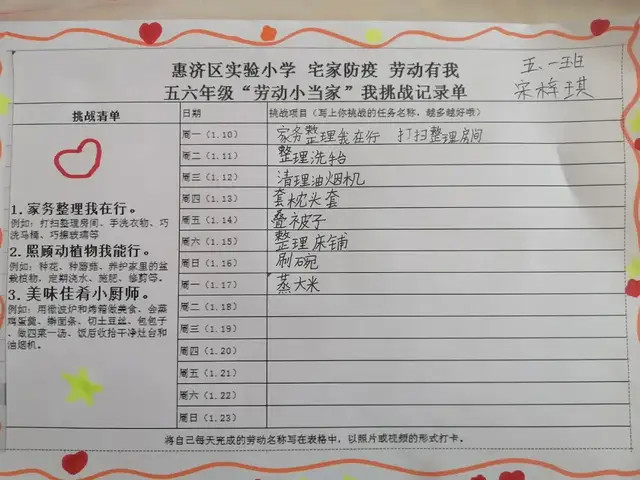 惠济区实验小学 宅家防疫 劳动有我
五六年级“劳动小当家”我挑战记录单
五.一班
宋梓琪
挑战清单
1. 家务整理我在行。
例如：打扫整理房间、手洗衣物、巧洗马桶、巧擦玻璃等
2. 照顾动植物我能行。
例如：种花、种蘑菇、养护家里的盆栽植物、定期浇水、施肥、修剪等。
3. 美味佳肴小厨师。
例如：用微波炉和烤箱做美食、会蒸鸡蛋羹、擀面条、切土豆丝、包包子、做四菜一汤、饭后收拾干净灶台和油烟机。
日期 挑战项目（写上你挑战的任务名称，越多越好哦）
周一（1.10） 家务整理我在行 打扫整理房间
周二（1.11） 整理洗
周三（1.12） 清理油烟机
周四（1.13） 套枕头套
周五（1.14） 叠被子
周六（1.15） 整理床铺
周日（1.16） 刷碗
周一（1.17） 蒸大米
周二（1.18）
周三（1.19）
周四（1.20）
周五（1.21）
周六（1.22）
周日（1.23）
将自己每天完成的劳动名称写在表格中，以照片或视频的形式打卡。